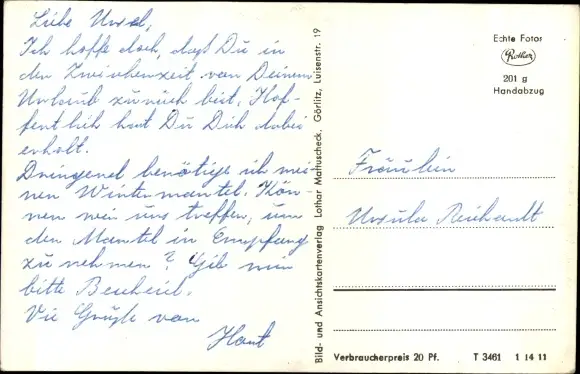 Liebe Ursel,
Ich hoffe doch, dagt Du in
der Zwischenzeit von Deinem
Urlaub zurück bist. Hof-
fentlich hast Du Dich dabei
erholt.
Dringend benötige ich mei-
nen Wintermantel. Kön-
nen wir uns treffen, um
den Mantel in Empfang
zu nehmen? Gib mir
bitte Bescheid.
Vie Grüße von
Horst
Bild- und Ansichtskartenverlag Lothar Mattuscheck, Görlitz, Luisenstr. 19
Echte Fotos
Rother
201 g
Handabzug
Fräulein
Ursula Reichardt
Verbraucherpreis 20 Pf. T 3461 1 14 11